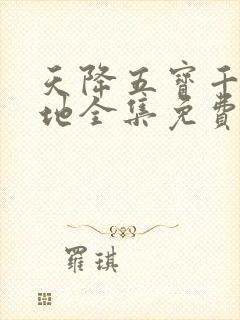 天降五寶千
地全集免費
羅琪